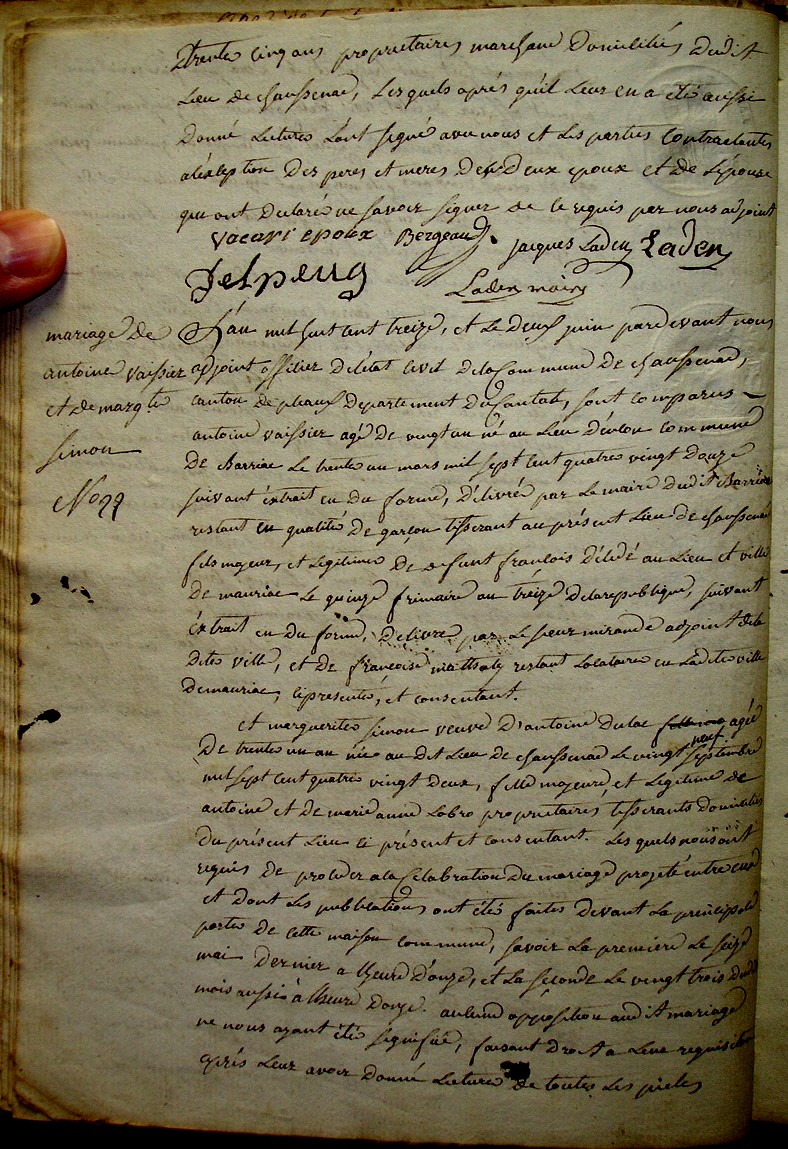 trente cinq ans proprietaires marchand domiciliés dudit
Lieu de chaussenac, Lesquels aprés qu'il Leur en a été aussi
donné Lecture L'ont signé avec nous et Les parties Contractantes
a léxception des peres et meres des deux epoux et de L'épouse
qui ont declaré ne savoir signer de ce requis par nous adjoint
vacari epoux Bergeaud. jacques Laden Laden
Delpeug
Laden maire
mariage de
antoine vaissier
et de margte
simon
No 22
L'an mil huit cent treize, et Le deux juin pardevant nous
adjoint officier déletat civil delaCommune de chaussenac,
canton de pleaux departement duCantal, sont comparus
antoine vaissier agé de vingt un né au Lieu commune
de Barriac Le trente un mars mil sept cent quatre vingt douze
suivant éxtrait en du forme, délivrée par Le maire dudit Barriac
restant en qualité de garçon tisserant au présent Lieu de chaussenac
fils majeur, et Legitime de defunt francois décédé au Lieu et ville
de mauriac Le quinze frimaire an treize delarepublique, suivant
éxtrait en du forme, délivré par Le sieur mirande adjoint dela
dite ville, et de francoise restant Locataire en Ladite ville
demauriac, cipresente, et consentant.
et marguerite simon veuve d'antoine dulac agée
de trente un an née au dit Lieu de chaussenac Le vingt neuf septembre
mil sept cent quatre vingt deux, fille majeure, et Legitime de
antoine et de marie anne Labro proprietaires tisserants domiciliés
du présent Lieu ci présent et consentant. Les quels nous ont
requis de proceder alaCelebration du mariage projeté entre eux
et dont Les publications ont été faites devant La principale
porte de cette maison commune, savoir La premiere Le seize
mai dernier a L'heure d'onze, et La seconde Le vingt trois dudit
mois aussi à L'heure donze. aucune opposition audit mariage
ne nous ayant été signifiée, faisant droit a Leur requisition
aprés Leur avoir donné Lecture de toutes Les pieces